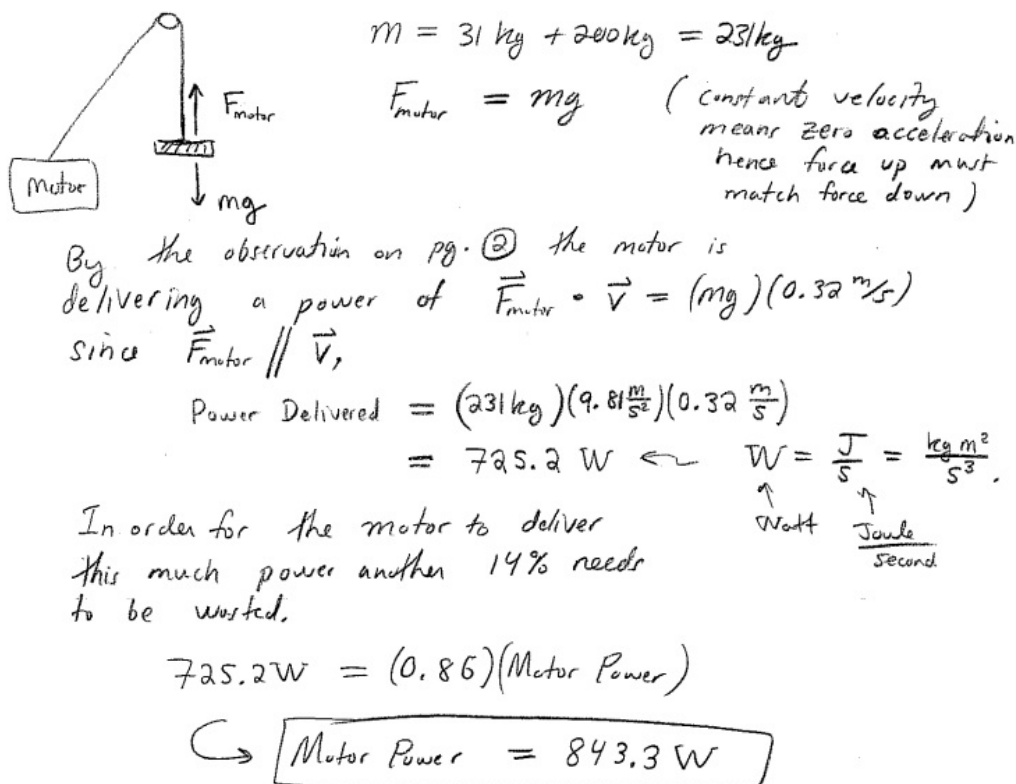 m = 31 kg + 200 kg = 231 kg
F_motor
F_motor = mg
(constant velocity
means zero acceleration
hence force up must
match force down)
Motor
mg
By the observation on pg. ② the motor is
delivering a power of F⃗_motor • V⃗ = (mg)(0.32 m/s)
since F⃗_motor // V⃗,
Power Delivered = (231 kg)(9.81 m/s²)(0.32 m/s)
= 725.2 W ← W = J/s = kg m²/s³.
↑ Watt ↑ Joule/second
In order for the motor to deliver
this much power another 14% needs
to be wasted.
725.2 W = (0.86)(Motor Power)
↪ Motor Power = 843.3 W